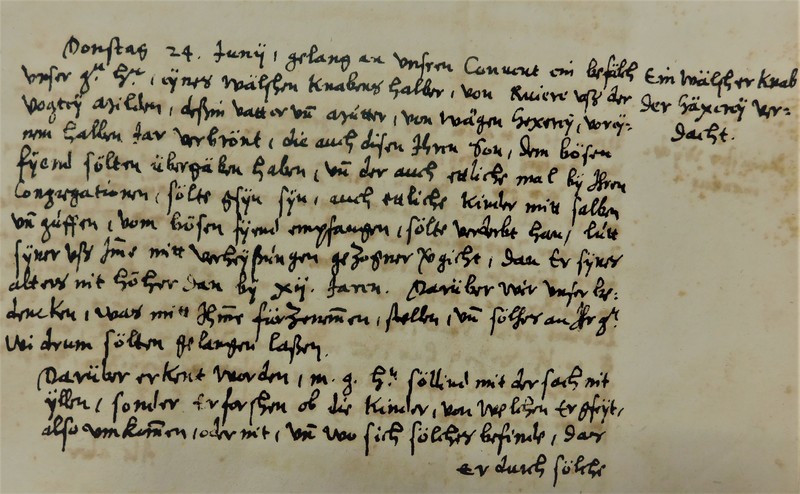 Donstag 24. Junij, gelang an unseren Convent ein befälch
unser gn. hn., eynes wälschen knabens halber, von Ruiere uß der
vogtey Milden, dessin vatter un mutter, von wägen hexerey, vorey-
nem halben Jar verbrönt, die auch disen Ihren Son, dem bösen
fyend sölten übergäben haben, un der auch ettliche mal by Ihren
Congregationen, sölte gsyn syn, auch ettliche kinder mitt salben
un güffen, vom bösen fyend empfangen, sölte verderbt han, lutt
syner uß Imme mitt verheyßungen gezogner Vogicht, dan Er synes
alters nit höher dan by xij. Jaren. Darüber wir unser be-
dencken, was mitt Ihmme fürzenemmen, stellen, un sölches an Ihr gn.
widrum sölten gelangen laßen.
Darüber erkent worden, m. g. hn. söllind mit der sach nit
yllen, sonder Erforschen ob die kinder, von welchen Er gseyt,
also umkommen, oder nit, un wo sich sölches befinde, das
Er durch sölche
Ein wälscher knab
der häxerey ver-
dacht.